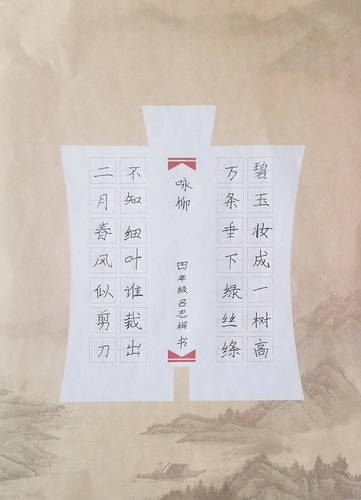 碧玉妆成一树高
万条垂下绿丝绦
咏柳
四年级吕思桐书
不知细叶谁裁出
二月春风似剪刀